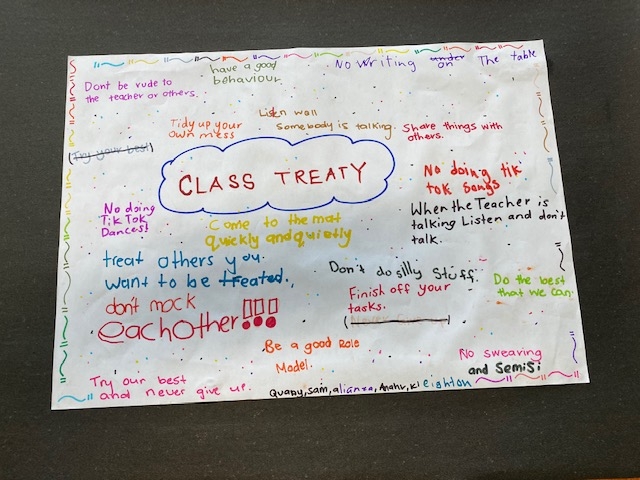 have a good
behaviour
No Writing under on The table
Dont be rude to
the teacher or others.
Listen wall
Somebody is talking.
Tidy up your
own mess
Share things with
others.
(Try your best)
CLASS TREATY
No doing tik
tok songs
No doing
TikTok
Dances!
Come to the mat
quickly and quietly
When the Teacher is
talking Listen and don't
talk.
treat others you
want to be treated.
Don't do silly stuff.
Do the best
that we can.
Finish off your
tasks.
don't mock
eachother!!!
Be a good Role
Model.
No swearing
and SemiSi
Try our best
and never give up.